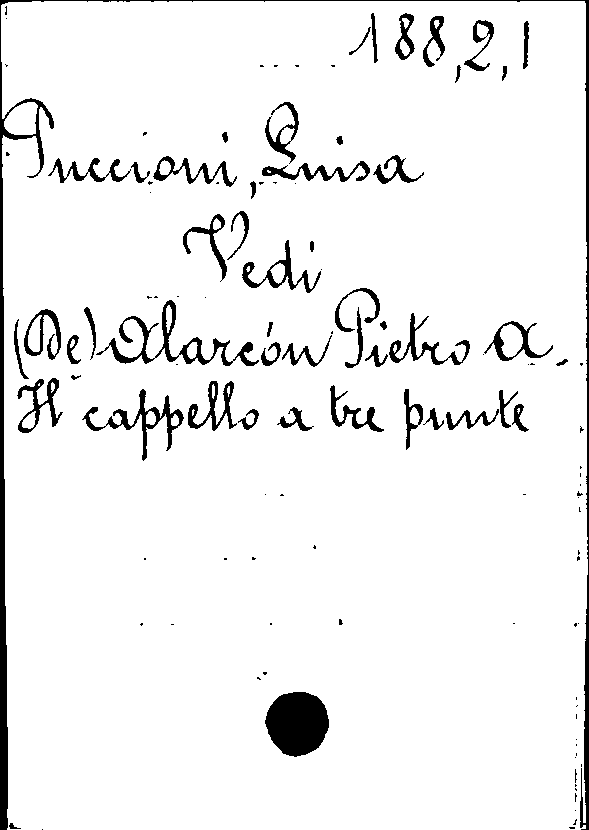 188,2,1
Puccioni, Luisa
Vedi
(De) Alarcón Pietro A.
Il cappello a tre punte